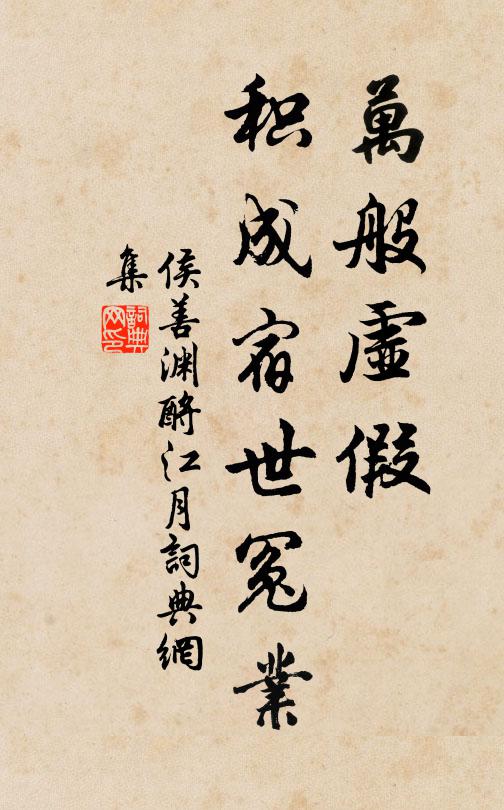 萬般虛假
积成宿世冤業
侯善渊酹江月詞典網
集
詞典
网印